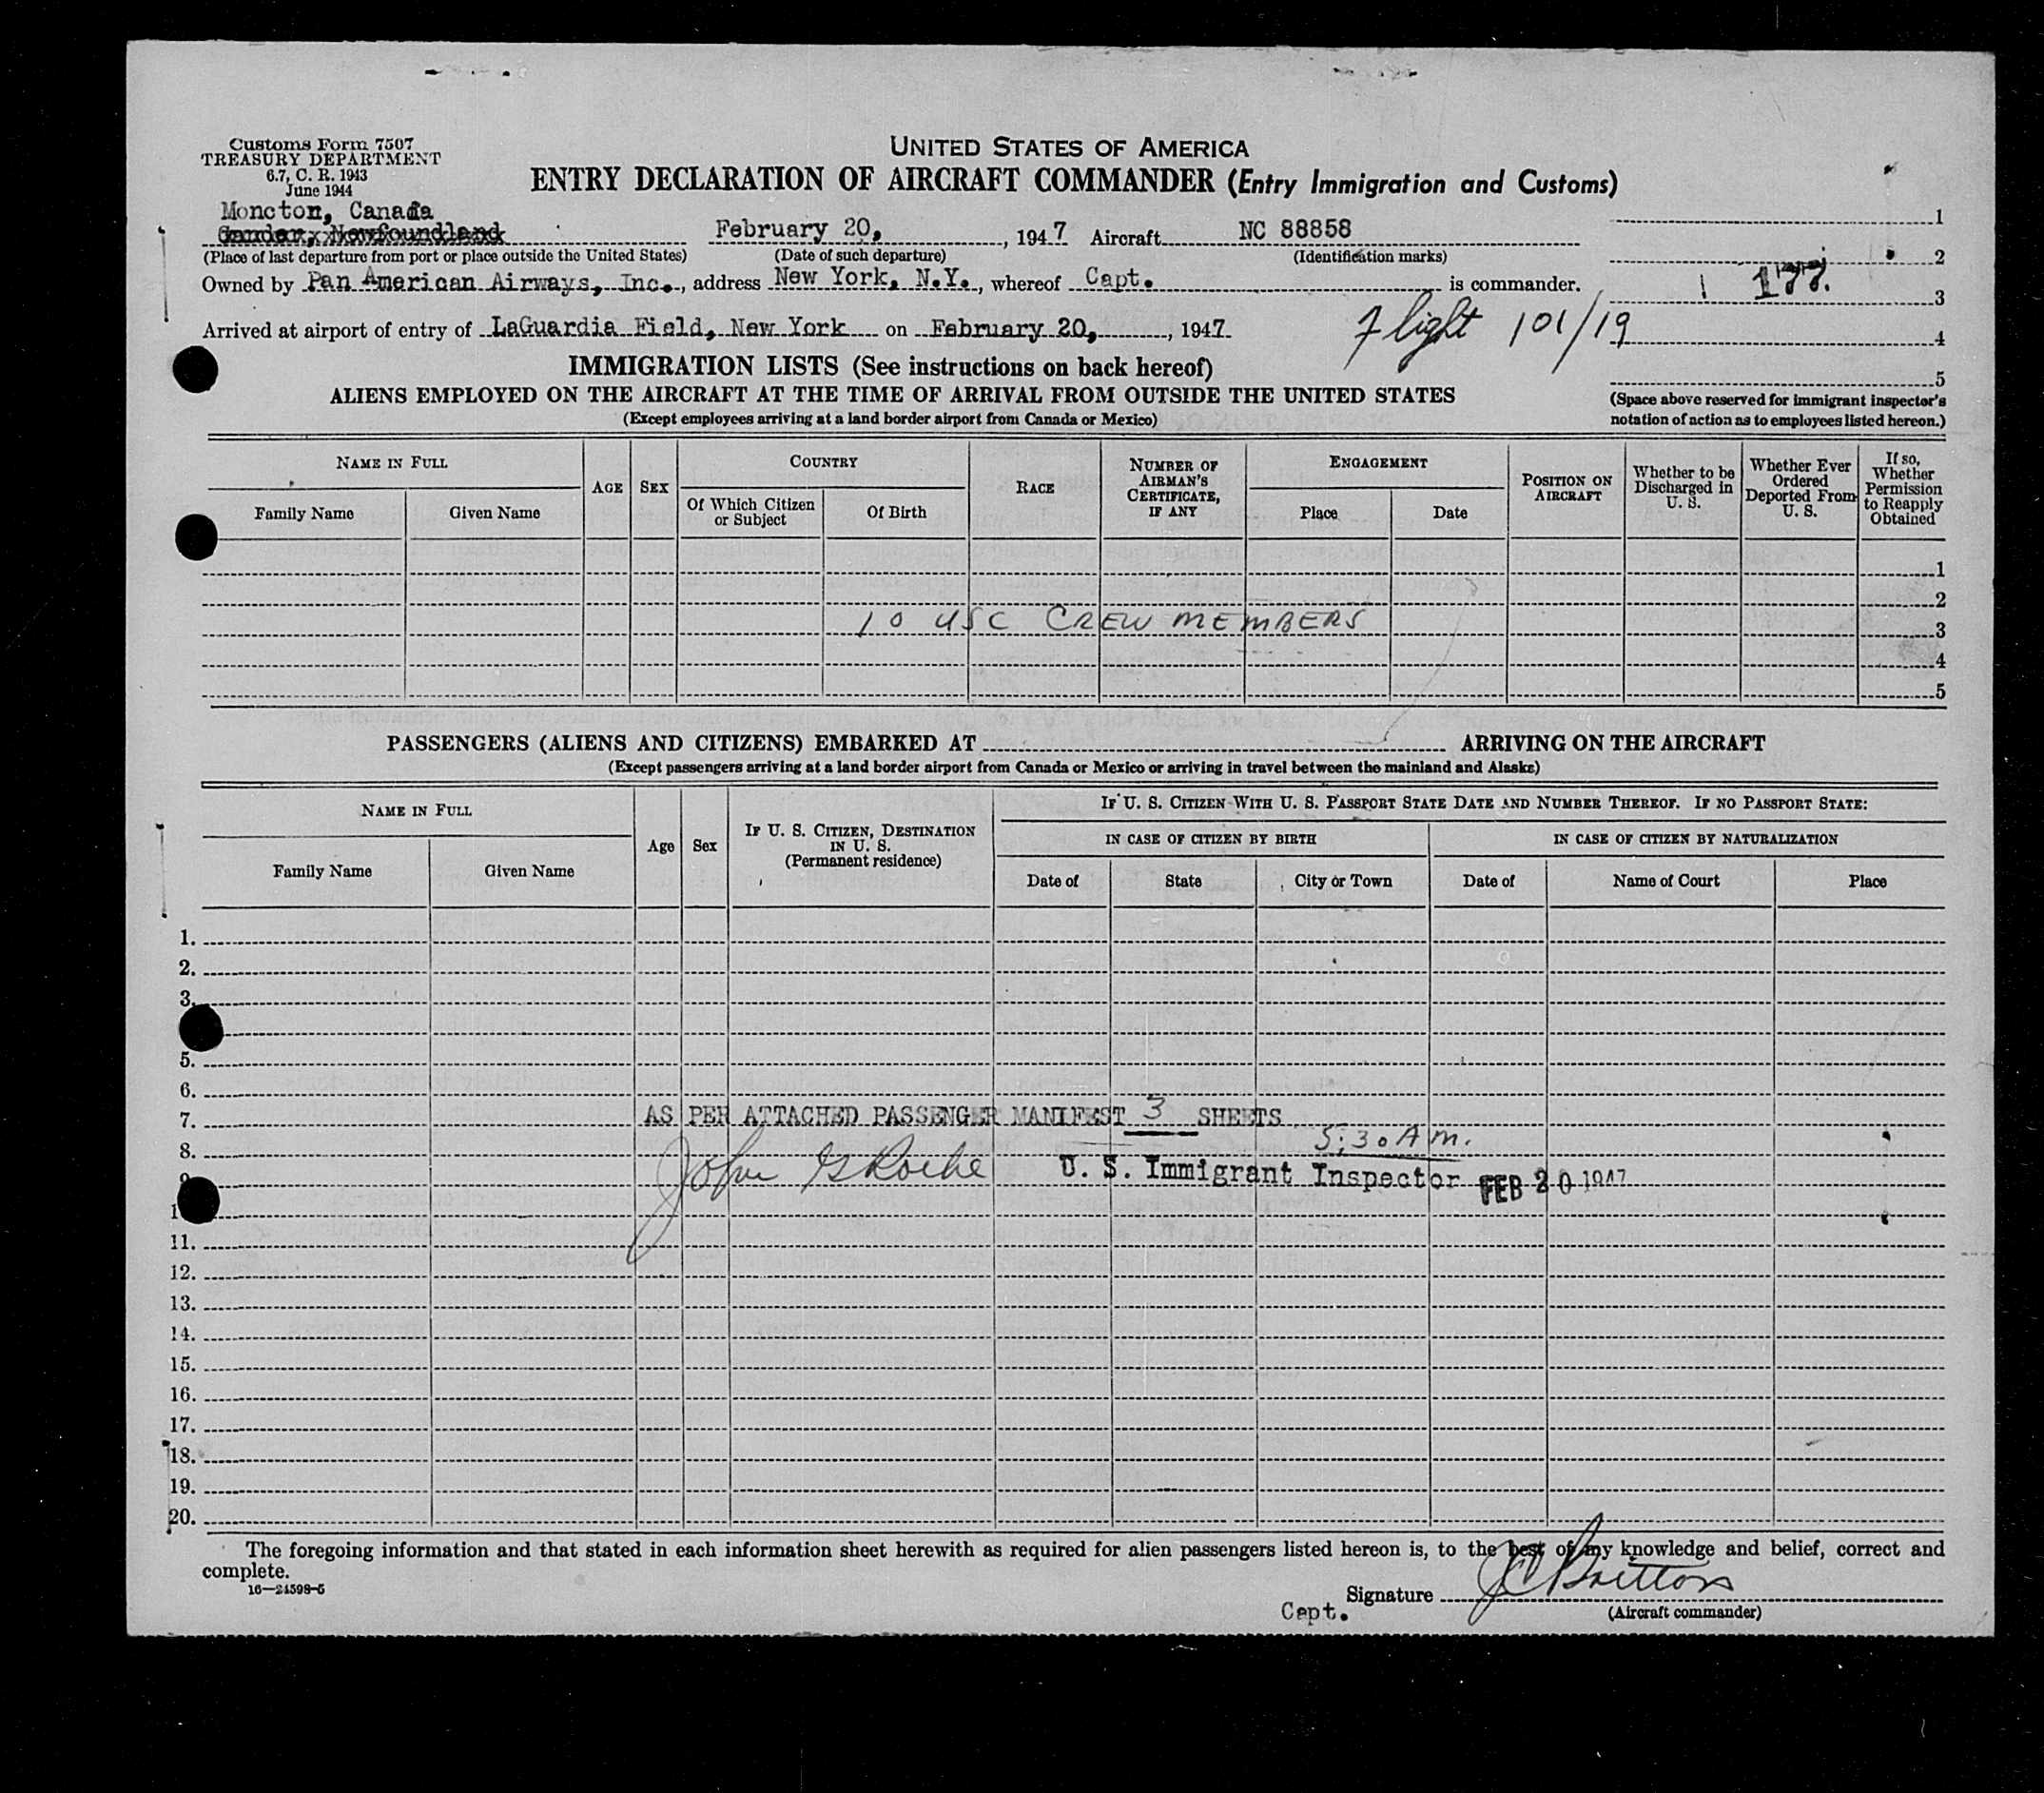 Customs Form 7507
TREASURY DEPARTMENT
6.7, C. R. 1943
June 1944
UNITED STATES OF AMERICA
ENTRY DECLARATION OF AIRCRAFT COMMANDER (Entry Immigration and Customs)
Moncton, Canada
Gander, Newfoundland February 20, , 1947 Aircraft NC 88858
(Place of last departure from port or place outside the United States) (Date of such departure) (Identification marks)
Owned by Pan American Airways, Inc., address New York, N.Y., whereof Capt. is commander.
Arrived at airport of entry of LaGuardia Field, New York on February 20, , 1947
Flight 101/19
1
2
177.
3
4
5
(Space above reserved for immigrant inspector's
notation of action as to employees listed hereon.)
IMMIGRATION LISTS (See instructions on back hereof)
ALIENS EMPLOYED ON THE AIRCRAFT AT THE TIME OF ARRIVAL FROM OUTSIDE THE UNITED STATES
(Except employees arriving at a land border airport from Canada or Mexico)
NAME IN FULL
Family Name Given Name
AGE
SEX
COUNTRY
Of Which Citizen or Subject Of Birth
RACE
NUMBER OF AIRMAN'S CERTIFICATE, IF ANY
ENGAGEMENT
Place Date
POSITION ON AIRCRAFT
Whether to be Discharged in U. S.
Whether Ever Ordered Deported From U. S.
If so, Whether Permission to Reapply Obtained
1
2
10 USC CREW MEMBERS 3
4
5
PASSENGERS (ALIENS AND CITIZENS) EMBARKED AT ARRIVING ON THE AIRCRAFT
(Except passengers arriving at a land border airport from Canada or Mexico or arriving in travel between the mainland and Alaska)
NAME IN FULL
Family Name Given Name
Age
Sex
IF U. S. CITIZEN, DESTINATION IN U. S. (Permanent residence)
IF U. S. CITIZEN WITH U. S. PASSPORT STATE DATE AND NUMBER THEREOF. IF NO PASSPORT STATE:
IN CASE OF CITIZEN BY BIRTH IN CASE OF CITIZEN BY NATURALIZATION
Date of State City or Town Date of Name of Court Place
1.
2.
3.
5.
6.
7. AS PER ATTACHED PASSENGER MANIFEST 3 SHEETS
5:30 A.M.
8.
John G Roche U. S. Immigrant Inspector FEB 20 1947
11.
12.
13.
14.
15.
16.
17.
18.
19.
20.
The foregoing information and that stated in each information sheet herewith as required for alien passengers listed hereon is, to the best of my knowledge and belief, correct and
complete.
16—24598-5
Signature J C Britton
Capt. (Aircraft commander)